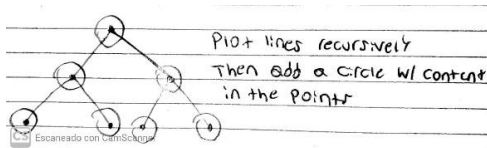 Plot lines recursively
Then add a circle w/ content
in the points
CS Escaneado con CamScanner